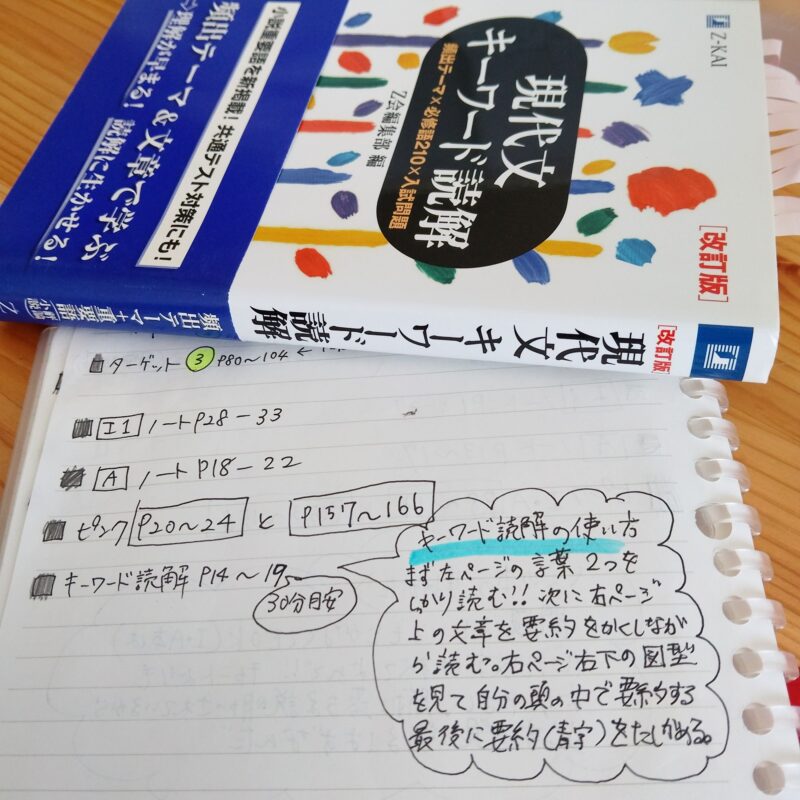 Z-KAI
[改訂版]
現代文
キーワード読解
頻出テーマ×必修語210×入試問題
Z会編集部 編
小説重要語を新掲載! 共通テスト対策にも!
頻出テーマ&文章で学ぶ
理解が早まる! 読解に生かせる!
[改訂版]
現代文キーワード読解
頻出テーマ+重要語
Z
ターゲット ③ P80〜104 ←
I1 ノートP28-33
A ノートP18-22
ピンク P20〜24 と P157〜166
キーワード読解 P14〜19
30分目安
キーワード読解の使い方
まず左ページの言葉2つを
しっかり読む!! 次に右ページ
上の文章を要約をかくしなが
ら読む。右ページ右下の図型
を見て自分の頭の中で要約する
最後に要約(青字)をたしかめる。